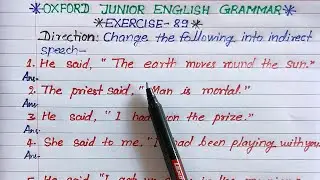 *OXFORD JUNIOR ENGLISH GRAMMAR*
*EXERCISE-89*
Direction: Change the following into indirect
speech-
1. He said, "The earth moves round the sun."
Ans:
2. The priest said, "Man is mortal."
Ans:
3. He said, "I had won the prize."
Ans:
4. She said to me, "I had been playing with you
Ans: